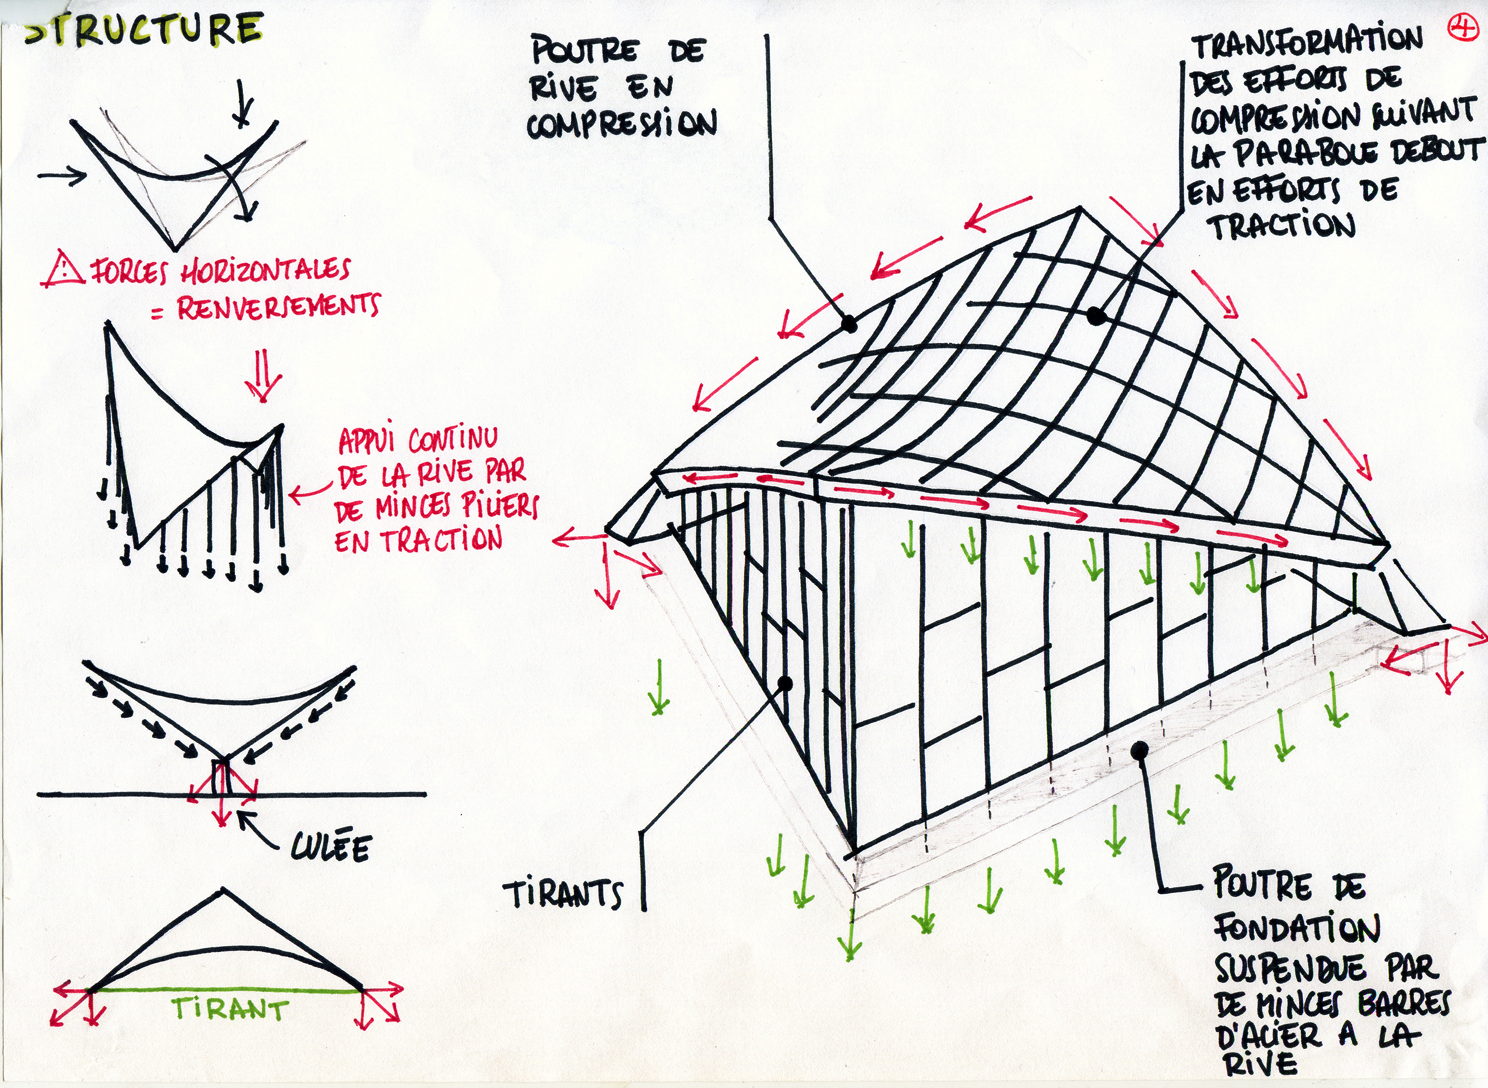 STRUCTURE
FORCES HORIZONTALES
= RENVERSEMENTS
APPUI CONTINU
DE LA RIVE PAR
DE MINCES PILIERS
EN TRACTION
CULÉE
TIRANT
POUTRE DE
RIVE EN
COMPRESSION
4
TRANSFORMATION
DES EFFORTS DE
COMPRESSION SUIVANT
LA PARABOLE DEBOUT
EN EFFORTS DE
TRACTION
TIRANTS
POUTRE DE
FONDATION
SUSPENDUE PAR
DE MINCES BARRES
D'ACIER A LA
RIVE